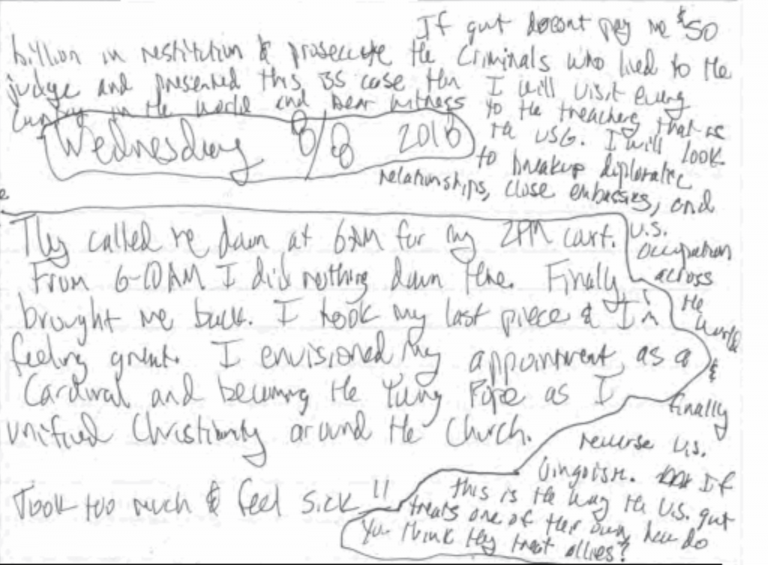 If gvt doesnt pay me $50
billion in restitution & prosecute the criminals who lied to the
judge and presented this BS case then I will visit every
country in the world and bear witness to the treachery that is
the USG. I will look
to breakup diplomatic
relationships, close embassies, and
U.S.
occupation
across
the
world
&
finally
reverse U.S.
Jingoism. If
this is the way the U.S. gvt
treats one of their own, how do
you think they treat allies?
Wednesday 8/8 2018
They called me down at 6AM for my 2PM court.
From 6-10AM I did nothing down there. Finally
brought me back. I took my last piece & I'm
feeling great. I envisioned my appointment as a
Cardinal and becoming the Young Pope as I
unified Christianity around the Church.
Took too much & feel sick!!